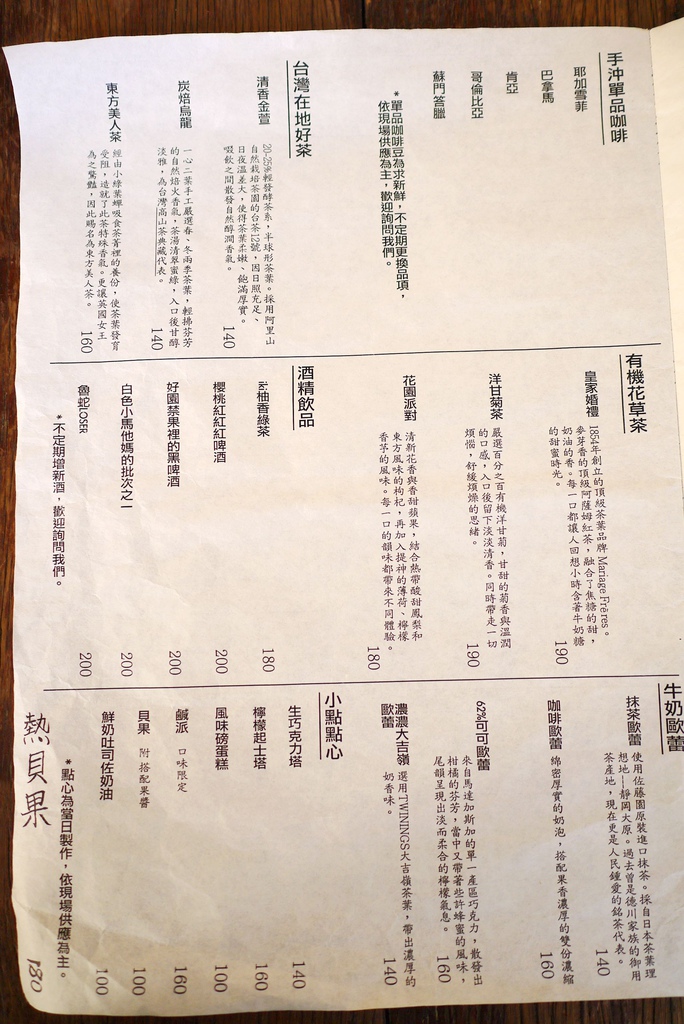 手沖單品咖啡
耶加雪菲
巴拿馬
肯亞
哥倫比亞
蘇門答臘
*單品咖啡豆為求新鮮，不定期更換品項，
依現場供應為主，歡迎詢問我們。
台灣在地好茶
清香金萱
20-25%輕發酵茶系，半球形茶葉。採用阿里山
自然栽培茶園的台茶12號，因日照充足、
日夜溫差大，使得茶葉柔嫩、飽滿厚實。
啜飲之間散發自然醇潤香氣。
140
炭焙烏龍
一心二葉手工嚴選春、冬兩季茶葉，輕拂芬芳
的自然焙火香氣，茶湯清翠蜜綠，入口後甘醇
淡雅，為台灣高山茶典藏代表。
140
東方美人茶
經由小綠葉蟬吸食茶菁裡的養份，使茶葉發育
受阻，造就了此茶特殊香氣。更讓英國女王
為之驚豔，因此賜名為東方美人茶。
160
有機花草茶
皇家婚禮
1854年創立的頂級茶葉品牌 Mariage Frères。
麥芽香的頂級阿薩姆紅茶，融合了焦糖的甜，
奶油的香。每一口都讓人回想小時含著牛奶糖
的甜蜜時光。
190
洋甘菊茶
嚴選百分之百有機洋甘菊，甘甜的菊香與溫潤
的口感，入口後留下淡淡清香。同時帶走一切
煩惱，舒緩煩燥的思緒。
190
花園派對
清新花香與香甜蘋果，結合熱帶酸甜鳳梨和
東方風味的枸杞，再加入提神的薄荷、檸檬
香茅的風味。每一口的韻味都帶來不同體驗。
180
酒精飲品
iki柚香綠茶 180
櫻桃紅紅紅啤酒 200
好園禁果裡的黑啤酒 200
白色小馬他媽的批次之一 200
魯蛇LOSER 200
*不定期增新酒，歡迎詢問我們。
牛奶歐蕾
抹茶歐蕾
使用佐藤園原裝進口抹茶。採自日本茶葉理
想地—靜岡大原。過去曾是德川家族的御用
茶產地，現在更是人民鍾愛的銘茶代表。
140
咖啡歐蕾
綿密厚實的奶泡，搭配果香濃厚的雙份濃縮
160
62%可可歐蕾
來自馬達加斯加的單一產區巧克力，散發出
柑橘的芬芳，當中又帶著些許蜂蜜的風味，
尾韻呈現出淡而柔合的檸檬氣息。
160
濃濃大吉嶺
歐蕾
選用TWININGS大吉嶺茶葉，帶出濃厚的
奶香味。
140
小點點心
生巧克力塔 140
檸檬起士塔 160
風味磅蛋糕 100
鹹派 口味限定 160
貝果 附 搭配果醬 100
鮮奶吐司佐奶油 100
*點心為當日製作，依現場供應為主。
熱貝果 180